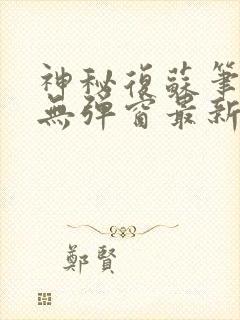 神秘復蘇筆
無彈窗最新
鄭賢